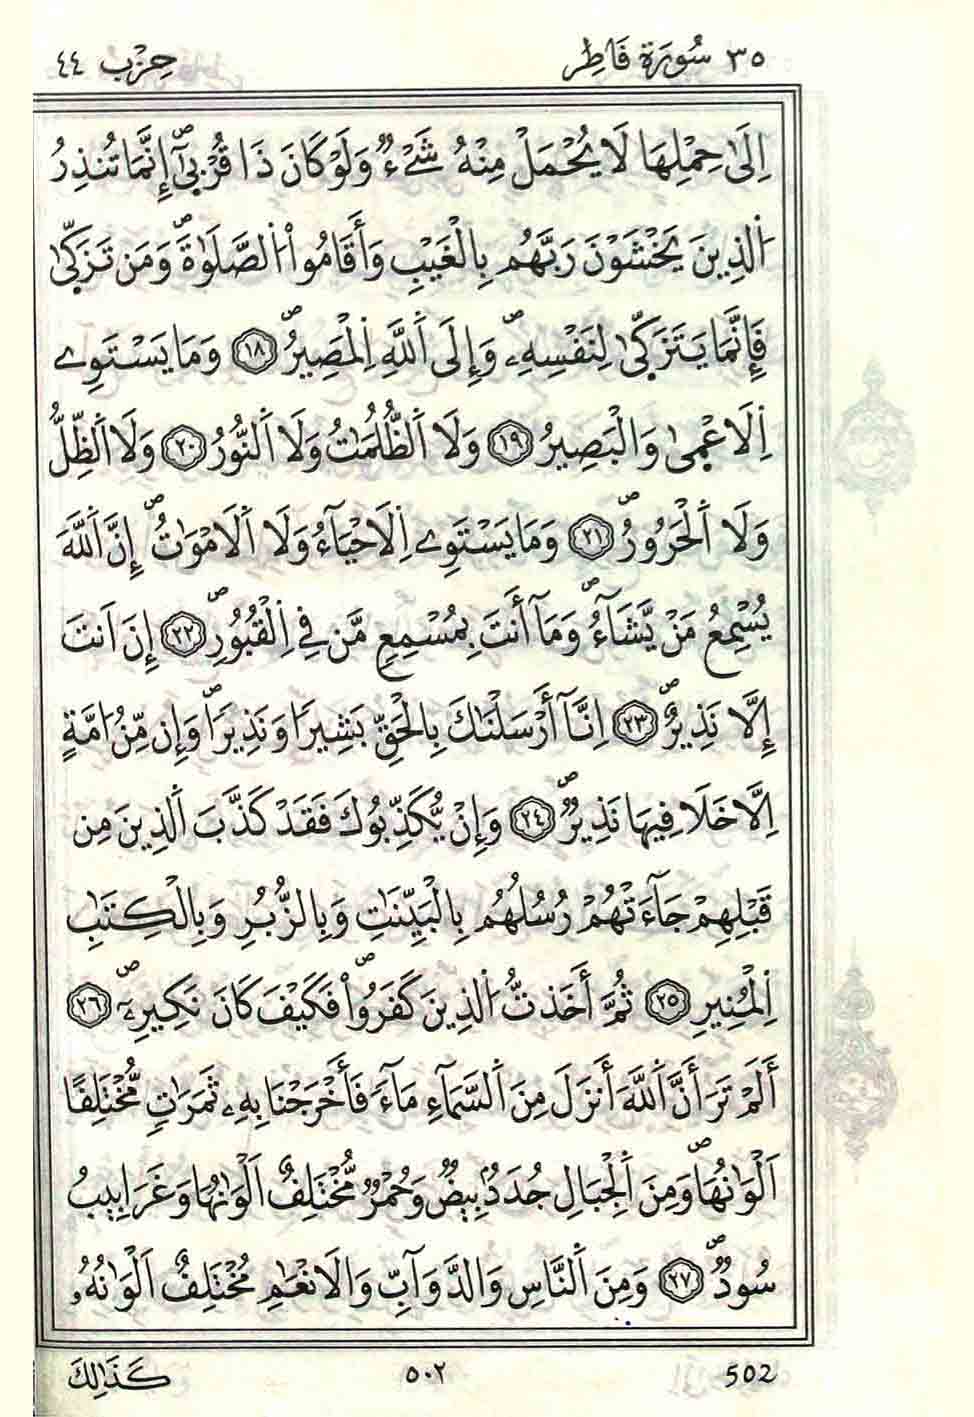 ٣٥ سُورَة فَاطِر
حِزْب ٤٤
إِلَىٰ حِمْلِهَا لَا يُحْمَلْ مِنْهُ شَيْءٌ وَلَوْ كَانَ ذَا قُرْبىٰٓ إِنَّمَا تُنذِرُ
اَ۬لذِينَ يَخْشَوْنَ رَبَّهُم بِالْغَيْبِ وَأَقَامُواْ اُ۬لصَّلَوٰةَ وَمَن تَزَكّىٰ
فَإِنَّمَا يَتَزَكّىٰ لِنَفْسِهِۦ وَإِلَى اَ۬للَّهِ اِ۬لْمَصِيرُ ١٨ وَمَا يَسْتَوِے
اِ۬لَاعْمىٰ وَالْبَصِيرُ ١٩ وَلَا اَ۬لظُّلُمَٰتُ وَلَا اَ۬لنُّورُ ٢٠ وَلَا اَ۬لظِّلُّ
وَلَا اَ۬لْحَرُورُ ٢١ وَمَا يَسْتَوِے اِ۬لَاحْيَآءُ وَلَا اَ۬لَامْوَٰتُ إِنَّ اَ۬للَّهَ
يُسْمِعُ مَنْ يَّشَآءُ وَمَآ أَنتَ بِمُسْمِعٍ مَّن فِي اِ۬لْقُبُورِ ٢٢ إِنَ اَنتَ
إِلَّا نَذِيرٌ ٢٣ اِنَّآ أَرْسَلْنَٰكَ بِالْحَقِّ بَشِيراً وَنَذِيراً وَإِن مِّنُ امَّةٍ
اِلَّا خَلَا فِيهَا نَذِيرٌ ٢٤ وَإِنْ يُّكَذِّبُوكَ فَقَدْ كَذَّبَ اَ۬لذِينَ مِن
قَبْلِهِمْ جَآءَتْهُمْ رُسُلُهُم بِالْبَيِّنَٰتِ وَبِالزُّبُرِ وَبِالْكِتَٰبِ
اِ۬لْمُنِيرِ ٢٥ ثُمَّ أَخَذتُّ اُ۬لذِينَ كَفَرُواْ فَكَيْفَ كَانَ نَكِيرِۦ ٢٦
أَلَمْ تَرَ أَنَّ اَ۬للَّهَ أَنزَلَ مِنَ اَ۬لسَّمَآءِ مَآءً فَأَخْرَجْنَا بِهِۦ ثَمَرَٰتٍ مُّخْتَلِفاً
اَلْوَٰنُهَا وَمِنَ اَ۬لْجِبَالِ جُدَدٌ بِيضٌ وَحُمْرٌ مُّخْتَلِفٌ اَلْوَٰنُهَا وَغَرَابِيبُ
سُودٌ ٢٧ وَمِنَ اَ۬لنَّاسِ وَالدَّوَآبِّ وَالَانْعَٰمِ مُخْتَلِفٌ اَلْوَٰنُهُۥ
كَذَٰلِكَ
٥٠٢
502